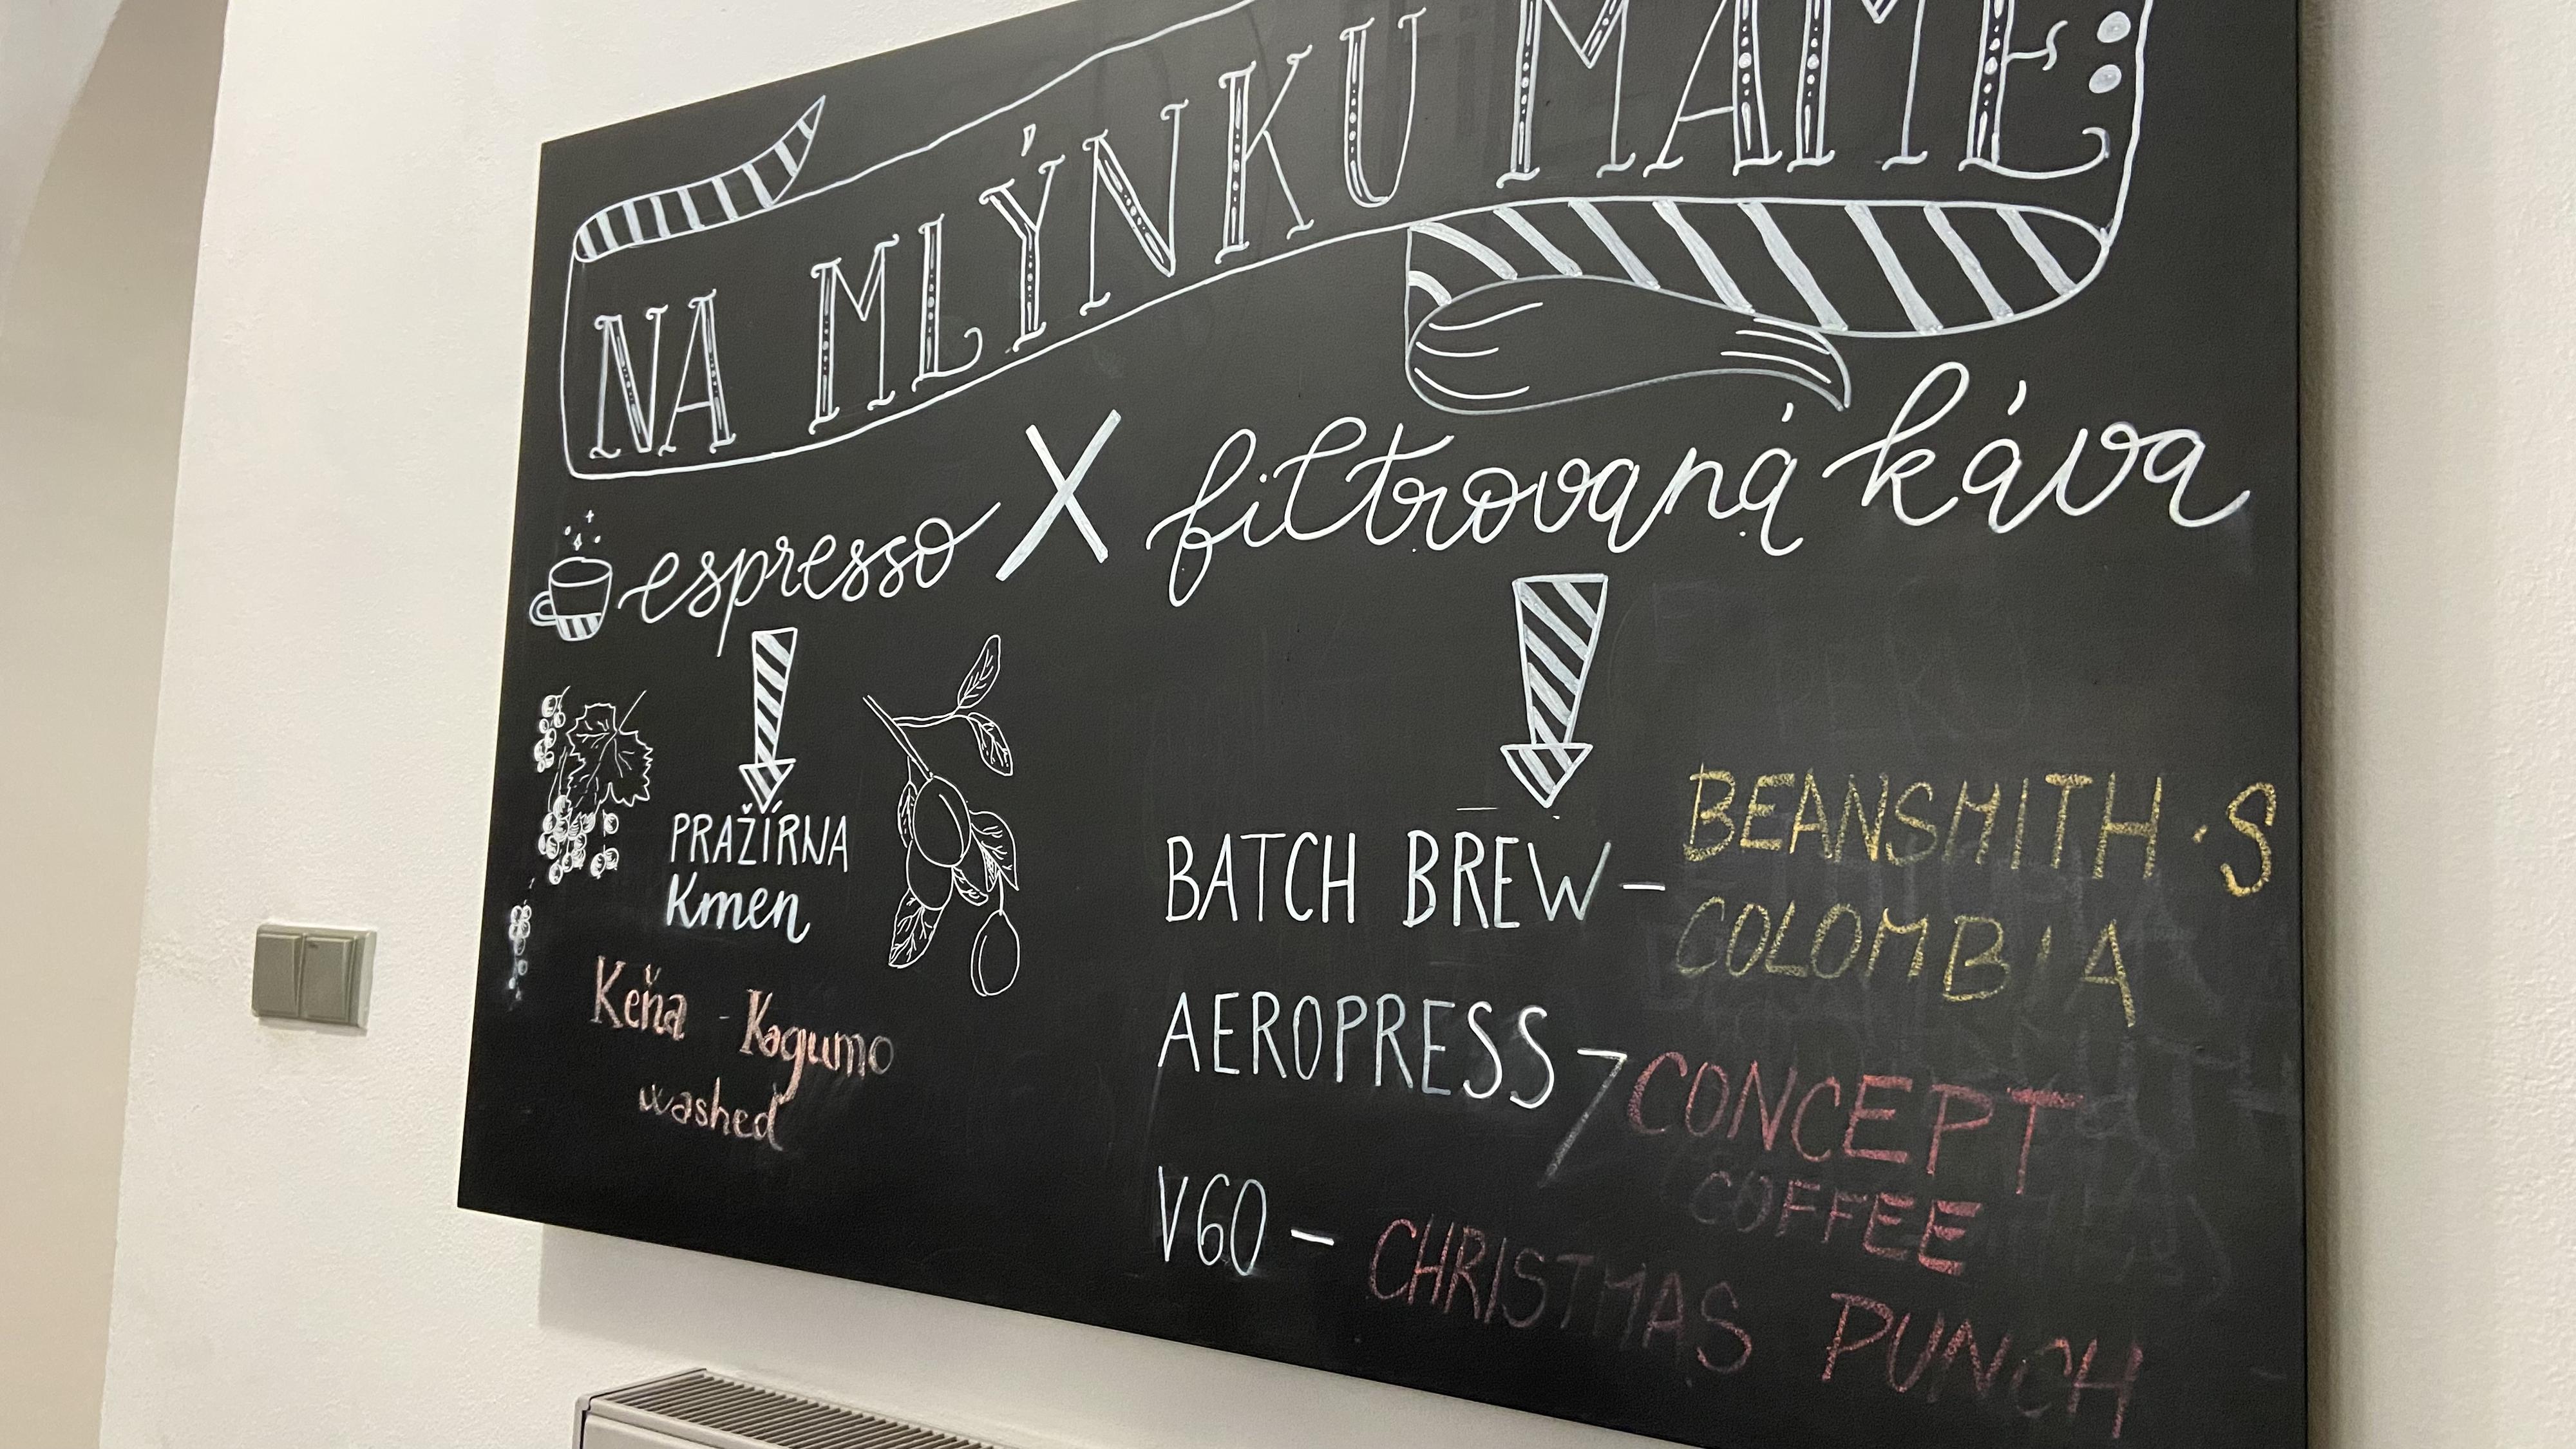 NA MLÝNKU MÁME:
espresso X filtrovaná káva
PRAŽÍRNA
Kmen
Keňa - Kagumo
washed
BATCH BREW - BEANSMITH'S
COLOMBIA
AEROPRESS / CONCEPT
COFFEE
V60 - CHRISTMAS PUNCH